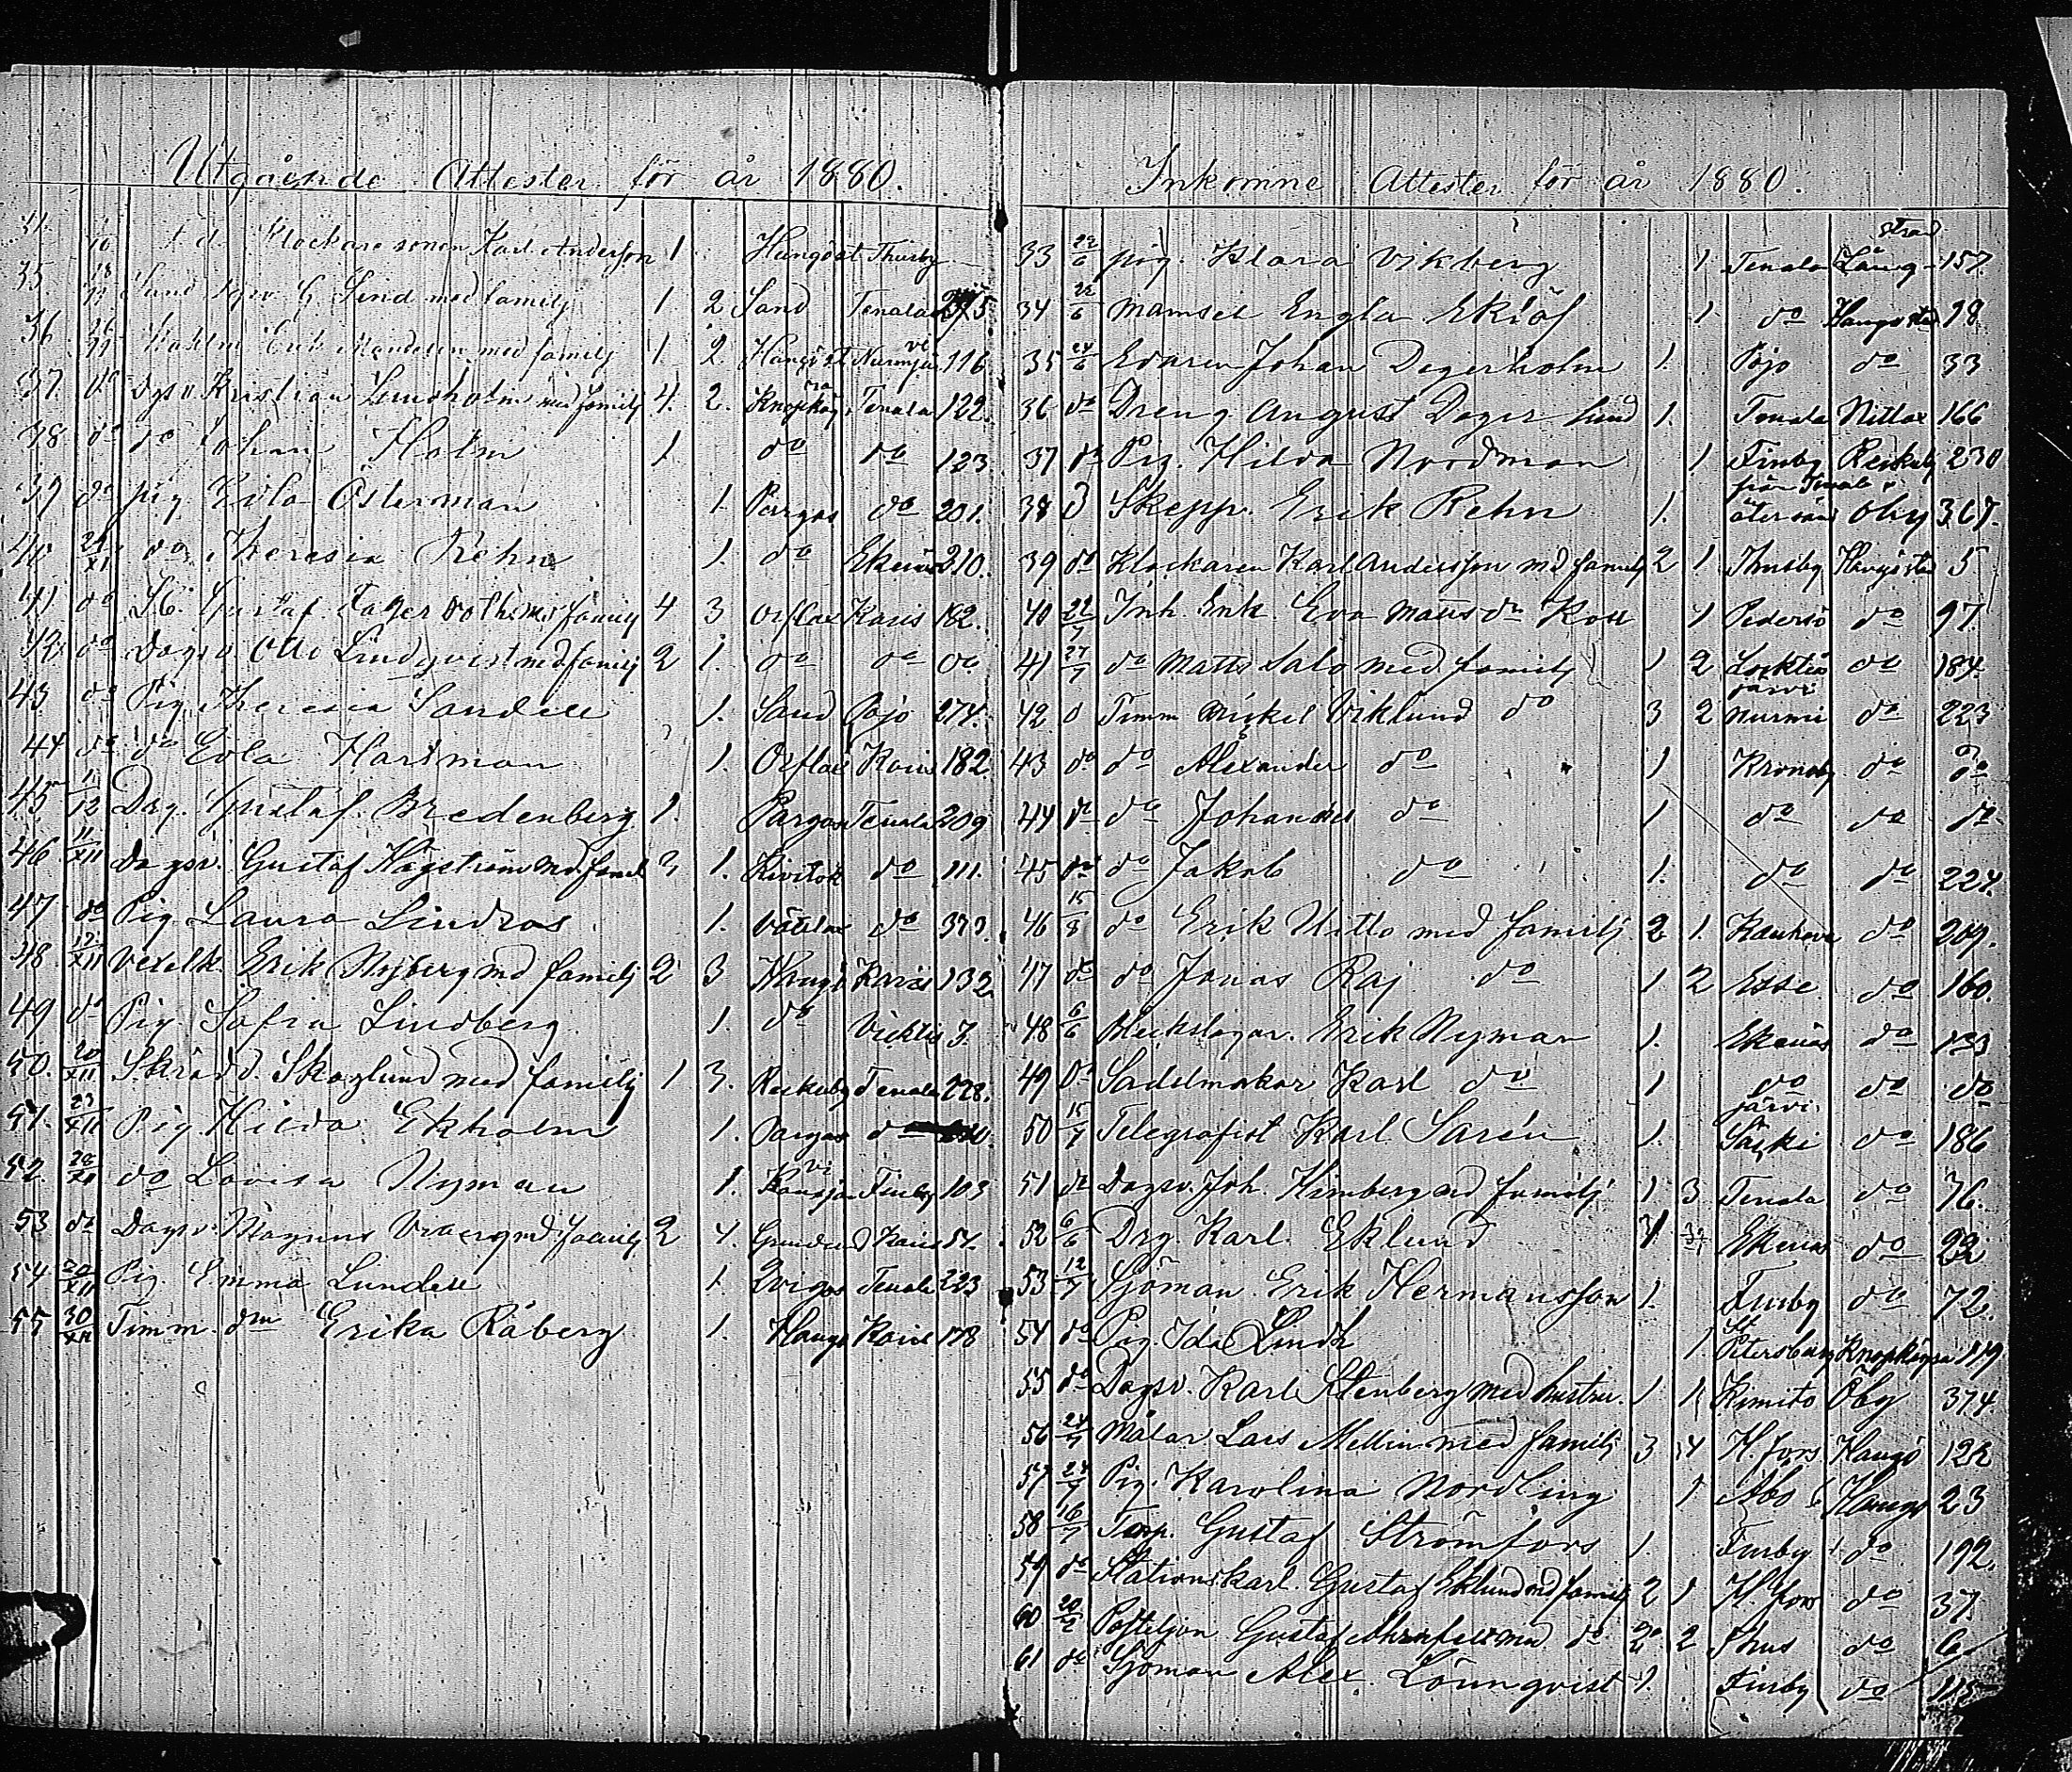 Utgående Attester för år 1880.
34. 10 f d. Klockare sonen Karl Anderson 1 Hangöst Thusby
35 18/11 Lind med familj 1 2 Sand Tenala
36 26/11 Erik med familj 1 2 Hangöst Nurmijärvi 116
37. do Dgsv Kristian Lindholm med familj 4. 2. Knopkägra Tenala 122.
38 do do Johan Holm 1 do do 123
39 do pig Edla Österman 1. Pargas do 201.
40 21/XI do Theresia Rehn 1. do Ekenäs 210.
41 do Gustaf Fager med familj 4 3 Orslax Karis 182.
42 do Dagsv. Otto Lindqvist med familj 2 1. do do do
43 do Pig Theresia Sandell 1. Sand Pojo 274.
44 do do Edla Hartman 1. Orslax Karis 182
45 11/12 Drg. Gustaf Bredenberg 1. Pargas Tenala 209
46 11/XII Dagsv. Gustaf Hägström med famil 3 1. Kivitok do 111.
47 do Pig Laura Lindros 1. do 373.
48 17/XII Vexelk. Erik Nyberg md familj 2 3 Hangö Karis 132
49 do Pig. Sofia Lindberg 1 do Vichtis 7.
50. 20/XII Skrädd. Skoglund med familj 1 3. Reckuby Tenala 228.
51. 23/XII Pig Hilda Ekholm 1. Pargas do
52. 28/XII do Lovisa Nyman 1. Finby 103
53 do Dagsv. Magnus md familj 2 4. Grundsund Karis 51.
54 20/XII Pig Emma Lundell 1. Qvigos Tenala 223
55 30/XII Timm. dm Erika Råberg 1. Hangö Karis 178
Inkomne Attester för år 1880.
33 22/6 pig. Klara Vikberg 1 Tenala Långstrand 157.
34 22/6 Mamsel Engla Eklöf 1 do Hangöstad 18
35 24/6 Johan Degerholm 1. Pojo do 33
36 do Dreng August Dagerlund 1. Tenala Nitlax 166
37 do Pig. Hilda Nordman 1 Finby Reckuby 230
38 d Skepp. Erik Rehn 1. från Tenala återvänd Öby 367.
39 do Klockaren Karl Andersson md familj 2 1 Thusby Hangöstad 5
40 22/7 Inh. Enk. Eva Matts dr Koll 1 Pedersö do 97.
41 27/7 do Matts Salo med familj 1 2 Locktiö do 184.
42 d Timm Mickel Viklund do 3 2 Nurmijärvi do 223
43 do do Alexander do 1 Kronoby do do
44 do do Johannes do 1 do do do
45 do do Jakob do 1. do do 224.
46 15/8 do Erik Hitto med familj. 2 1. Kauhava do 209.
47 do do Jonas Raj do 1 2 Esse do 160.
48 6/6 Bleckslagar. Erik Nyman 1. Ekenäs do 133
49 do Sadelmakar Karl do 1 do do do
50 15/7 Telegrafist Karl Sarén 1. Särkijärvi do 186
51 do Dagsv. Joh. Himberg md familj 1 3 Tenala do 76.
52 6/6 Drg. Karl Eklund 1 Ekenäs do 22
53 12/7 Sjöman Erik Hermansson 1. Finby do 72.
54 do Pig. Ida Lindh 1 St Petersburg Knopkägra 119
55 do Dagsv. Karl Stenberg med hustru. 1 1 Kimito Öby 374.
56 24/7 Målar Lars Mellin med familj 3 4 H.fors Hangö 122
57 24/7 Pig. Karolina Nordling 1 Åbo Hangö 23
58 16/7 Torp. Gustaf Strömfors 1. Finby do 192.
59 do Stationskarl. Gustaf Eklund md familj 2 1 H.fors do 37.
60 20/2 Postiljon Gustaf med do 2 2 Thus do 6
61 do Sjöman Alex. Lönnqvist 1. Finby do 115